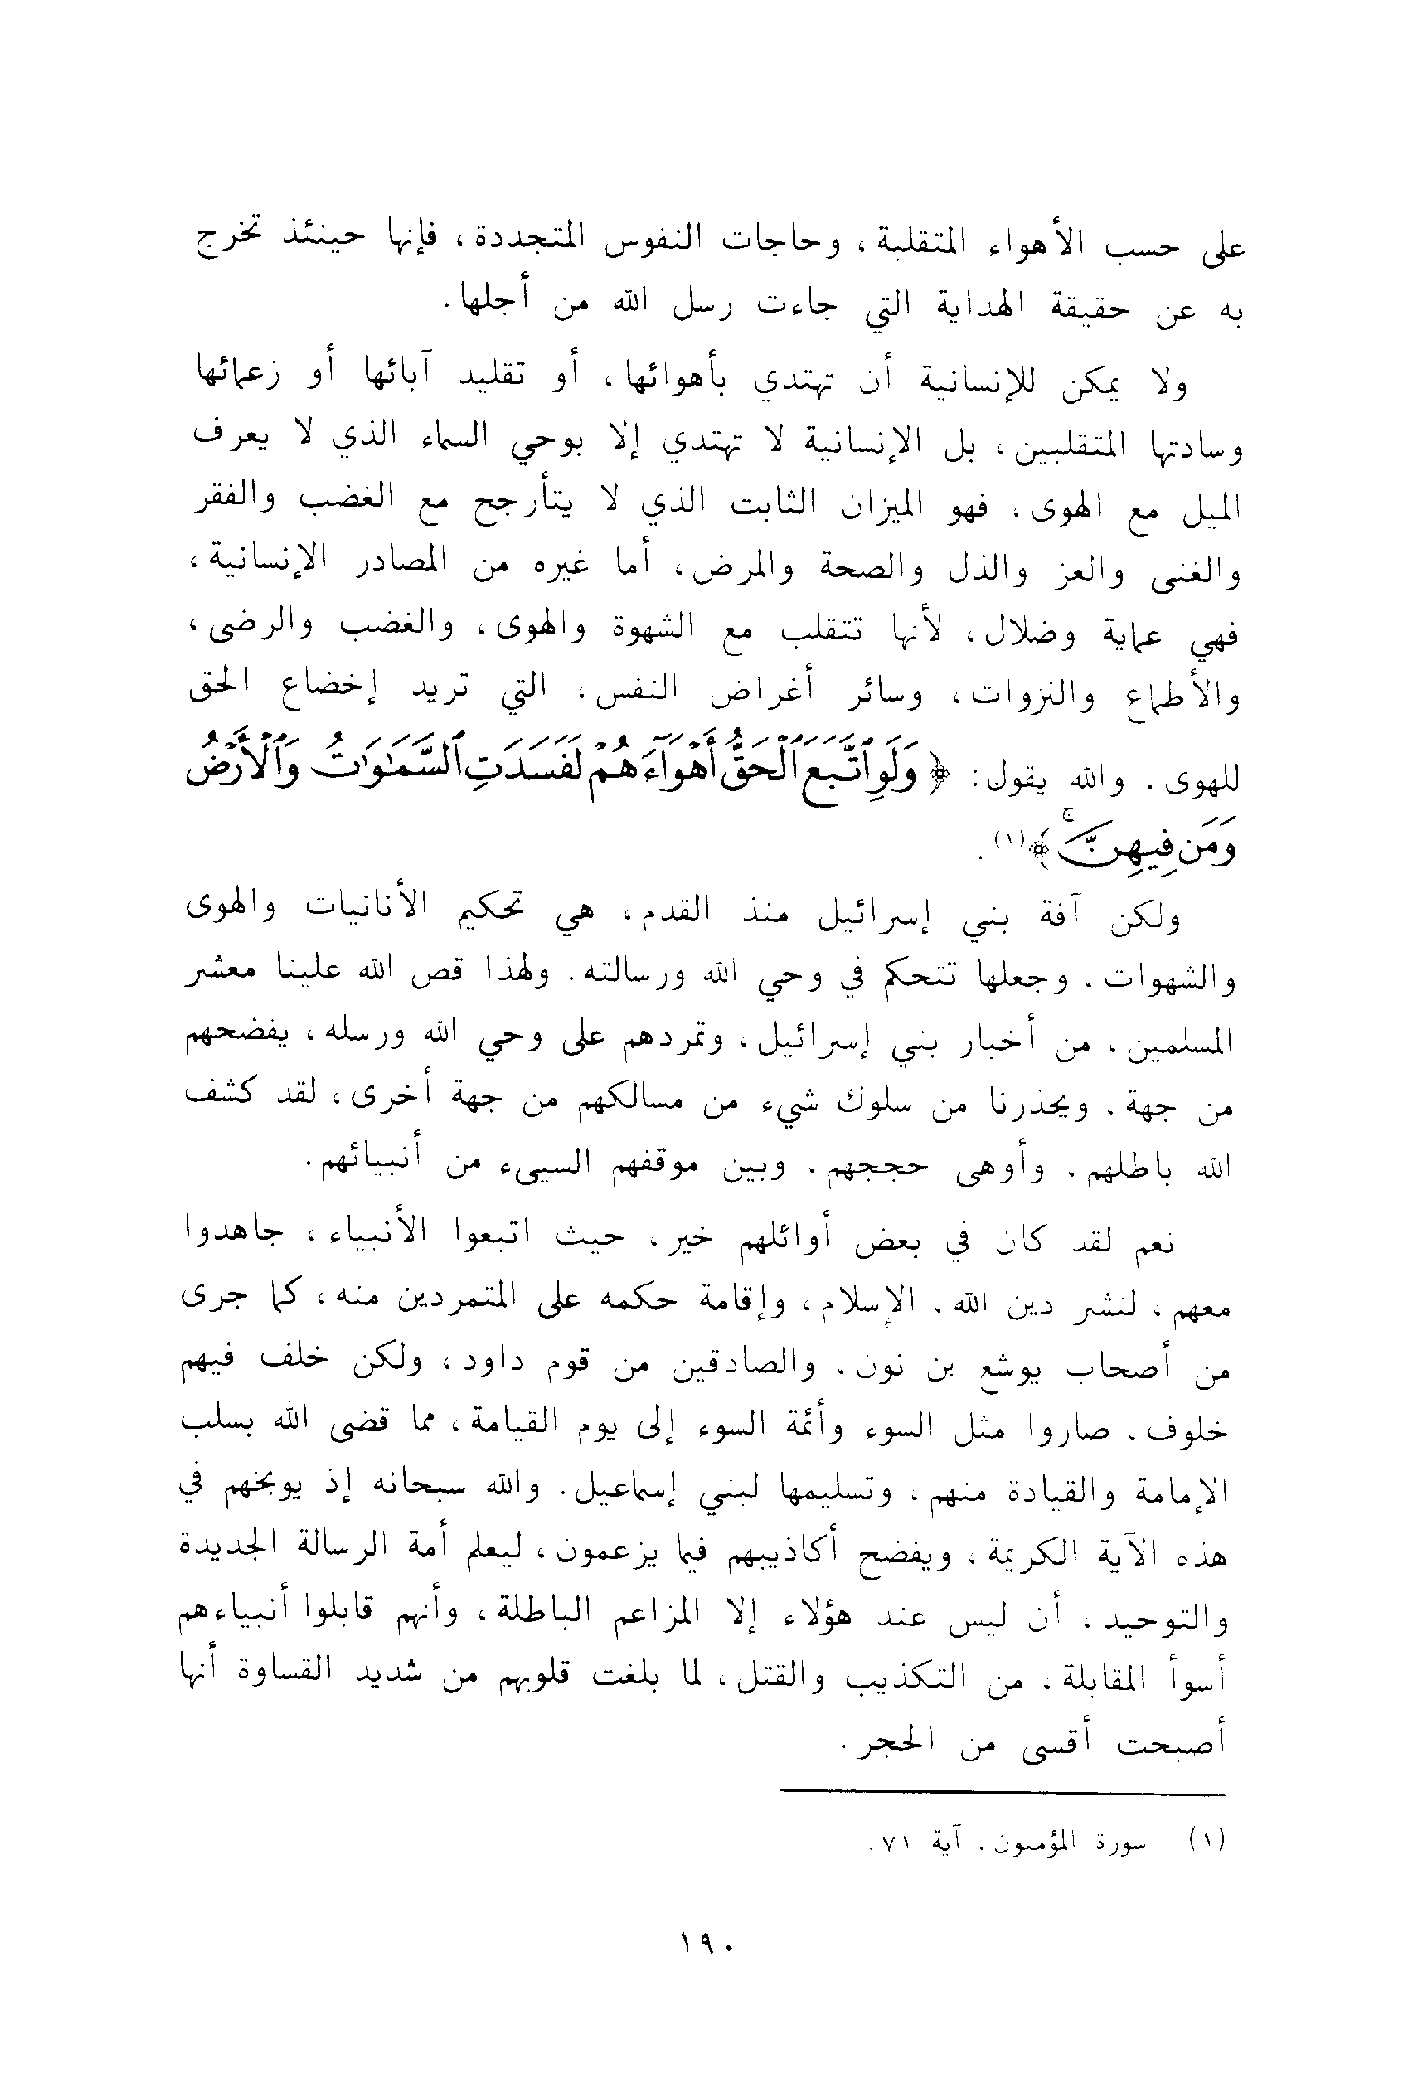 على حسب الأهواء المتقلبة، وحاجات النفوس المتجددة، فإنها حينئذ تخرج
به عن حقيقة الهداية التي جاءت رسل الله من أجلها.
ولا يمكن للإنسانية أن تهتدي بأهوائها، أو تقليد آبائها أو زعمائها
وسادتها المتقلبين، بل الإنسانية لا تهتدي إلا بوحي السماء الذي لا يعرف
الميل مع الهوى، فهو الميزان الثابت الذي لا يتأرجح مع الغضب والفقر
والغنى والعز والذل والصحة والمرض، أما غيره من المصادر الإنسانية،
فهي عماية وضلال، لأنها تتقلب مع الشهوة والهوى، والغضب والرضى،
والأطماع والنزوات، وسائر أغراض النفس، التي تريد إخضاع الحق
للهوى. والله يقول: ﴿ وَلَوِ ٱتَّبَعَ ٱلْحَقُّ أَهْوَآءَهُمْ لَفَسَدَتِ ٱلسَّمَٰوَٰتُ وَٱلْأَرْضُ
وَمَن فِيهِنَّ ۚ ﴾(١).
ولكن آفة بني إسرائيل منذ القدم، هي تحكيم الأنانيات والهوى
والشهوات، وجعلها تتحكم في وحي الله ورسالته. ولهذا قص الله علينا معشر
المسلمين، من أخبار بني إسرائيل، وتمردهم على وحي الله ورسله، يفضحهم
من جهة، ويحذرنا من سلوك شيء من مسالكهم من جهة أخرى، لقد كشف
الله باطلهم، وأوهى حججهم، وبين موقفهم السيىء من أنبيائهم.
نعم لقد كان في بعض أوائلهم خير، حيث اتبعوا الأنبياء، جاهدوا
معهم، لنشر دين الله، الإسلام، وإقامة حكمه على المتمردين منه، كما جرى
من أصحاب يوشع بن نون، والصادقين من قوم داود، ولكن خلف فيهم
خلوف، صاروا مثل السوء وأئمة السوء إلى يوم القيامة، مما قضى الله بسلب
الإمامة والقيادة منهم، وتسليمها لبني إسماعيل. والله سبحانه إذ يوبخهم في
هذه الآية الكريمة، ويفضح أكاذيبهم فيما يزعمون، ليعلم أمة الرسالة الجديدة
والتوحيد، أن ليس عند هؤلاء إلا المزاعم الباطلة، وأنهم قابلوا أنبياءهم
أسوأ المقابلة، من التكذيب والقتل، لما بلغت قلوبهم من شديد القساوة أنها
أصبحت أقسى من الحجر.
(١) سورة المؤمنون، آية ٧١.
١٩٠